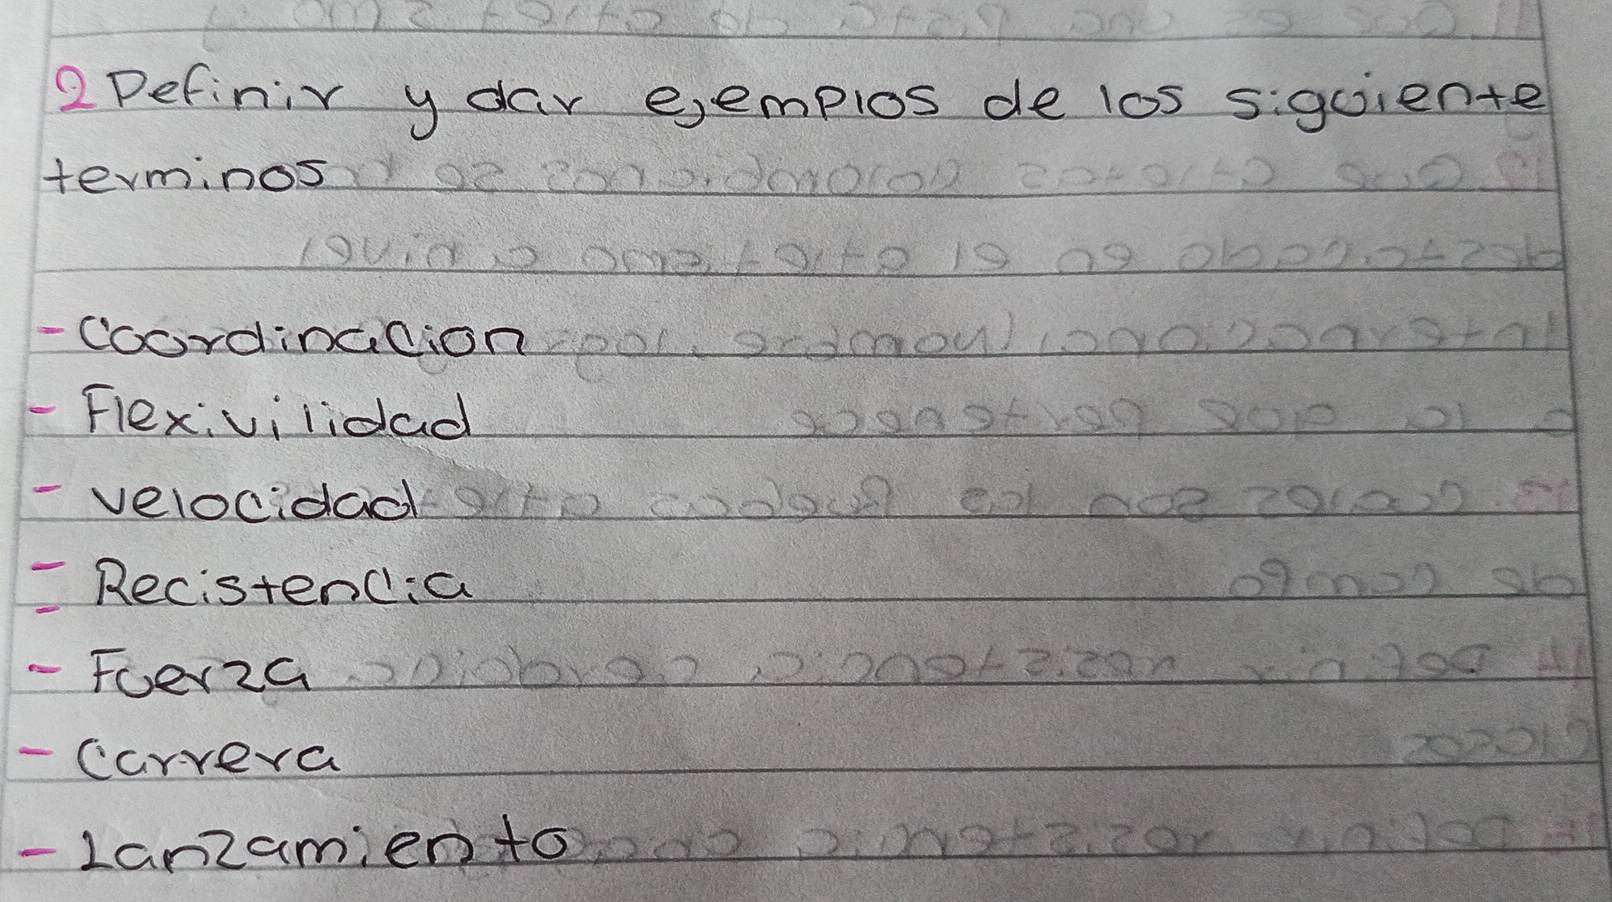 2 Definir y dar ejemplos de los siguiente
terminos
- Coordinacion
- Flexivilidad
- velocidad
- Recistencia
- Fuerza
- Carrera
- Lanzamiento